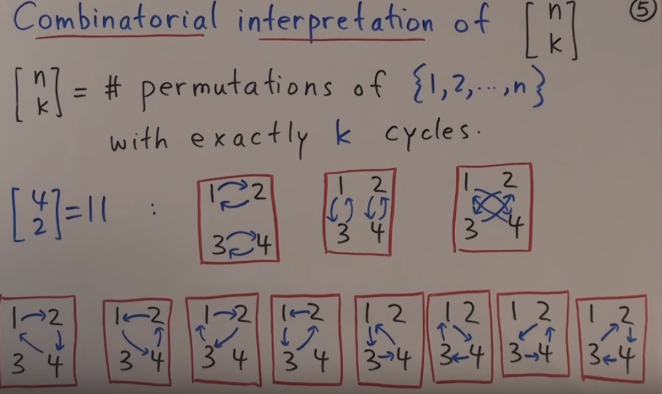 Combinatorial interpretation of [n k] ⑤
[n k] = # permutations of {1,2,...,n}
with exactly k cycles.
[4 2] = 11 :
1 2
3 4
1 2
3 4
1 2
3 4
1 2
3 4
1 2
3 4
1 2
3 4
1 2
3 4
1 2
3 4
1 2
3 4
1 2
3 4
1 2
3 4